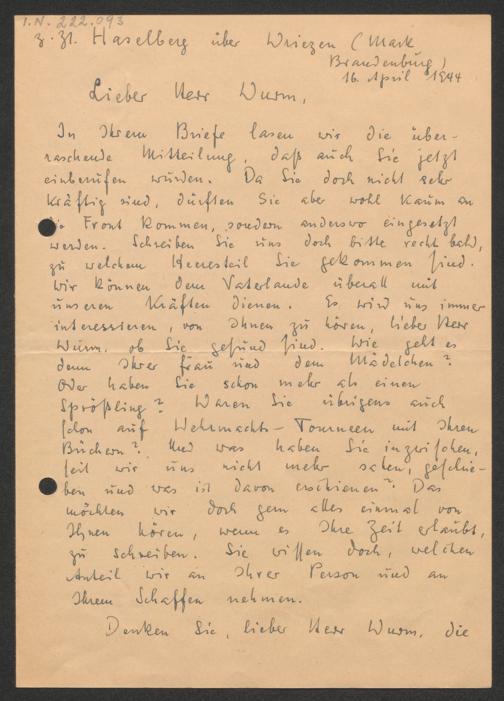 I.N. 222.093
z. Zt. Haselberg über Wriezen (Mark
Brandenburg)
16. April 1944
Lieber Herr Wurm,
In Ihrem Briefe lasen wir die über-
raschende Mitteilung, daß auch Sie jetzt
einberufen wurden. Da Sie doch nicht sehr
kräftig sind, dürften Sie aber wohl kaum an
die Front kommen, sondern anderswo eingesetzt
werden. Schreiben Sie uns doch bitte recht bald,
zu welchem Heeresteil Sie gekommen sind.
Wir können dem Vaterlande überall mit
unseren Kräften dienen. Es wird uns immer
interessieren, von Ihnen zu hören, lieber Herr
Wurm, ob Sie gesund sind. Wie geht es
denn Ihrer Frau und dem Mädelchen?
Oder haben Sie schon mehr als einen
Sprößling? Waren Sie übrigens auch
schon auf Wehrmachts-Tourneen mit Ihren
Büchern? Und was haben Sie inzwischen,
seit wir uns nicht mehr sahen, geschrie-
ben und was ist davon erschienen? Das
möchten wir doch gern alles einmal von
Ihnen hören, wenn es Ihre Zeit erlaubt,
zu schreiben. Sie wissen doch, welchen
Anteil wir an Ihrer Person und an
Ihrem Schaffen nehmen.
Denken Sie, lieber Herr Wurm, die